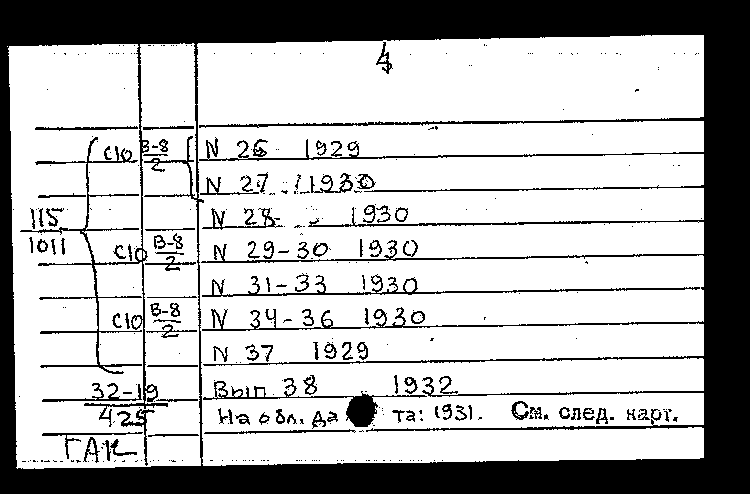 4
С10 В-8/2 N 26 1929
N 27 1930
115/1011
N 28 1930
С10 В-8/2 N 29-30 1930
N 31-33 1930
С10 В-8/2 N 34-36 1930
N 37 1929
32-19/425 Вып 38 1932
На обл. да та: 1931. См. след. карт.
ГАК